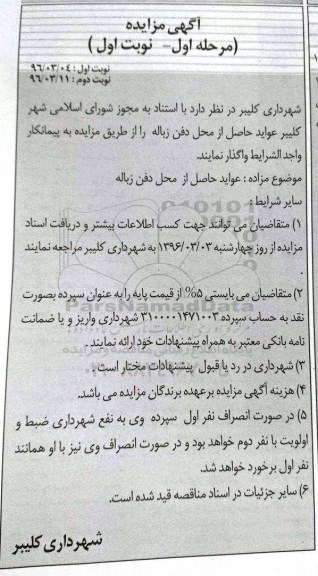 آگهی مزایده
(مرحله اول- نوبت اول )
نوبت اول : ۹۶/۰۳/۰۴
نوبت دوم : ۹۶/۰۳/۱۱
شهرداری کلیبر در نظر دارد با استناد به مجوز شورای اسلامی شهر
کلیبر عواید حاصل از محل دفن زباله را از طریق مزایده به پیمانکار
واجدالشرایط واگذار نمایند.
موضوع مزاده : عواید حاصل از محل دفن زباله
سایر شرایط :
۱) متقاضیان می توانند جهت کسب اطلاعات بیشتر و دریافت اسناد
مزایده از روز چهارشنبه ۱۳۹۶/۰۳/۰۳ به شهرداری کلیبر مراجعه نمایند
.
۲) متقاضیان می بایستی ۵% از قیمت پایه را به عنوان سپرده بصورت
نقد به حساب سپرده ۳۱۰۰۰۰۱۴۷۱۰۰۳ شهرداری واریز و یا ضمانت
نامه بانکی معتبر به همراه پیشنهادات خود ارائه نمایند .
۳) شهرداری در رد یا قبول پیشنهادات مختار است .
۴) هزینه آگهی مزایده بر عهده برندگان مزایده می باشد.
۵) در صورت انصراف نفر اول سپرده وی به نفع شهرداری ضبط و
اولویت با نفر دوم خواهد بود و در صورت انصراف وی نیز با او همانند
نفر اول برخورد خواهد شد.
۶) سایر جزئیات در اسناد مناقصه قید شده است.
شهرداری کلیبر